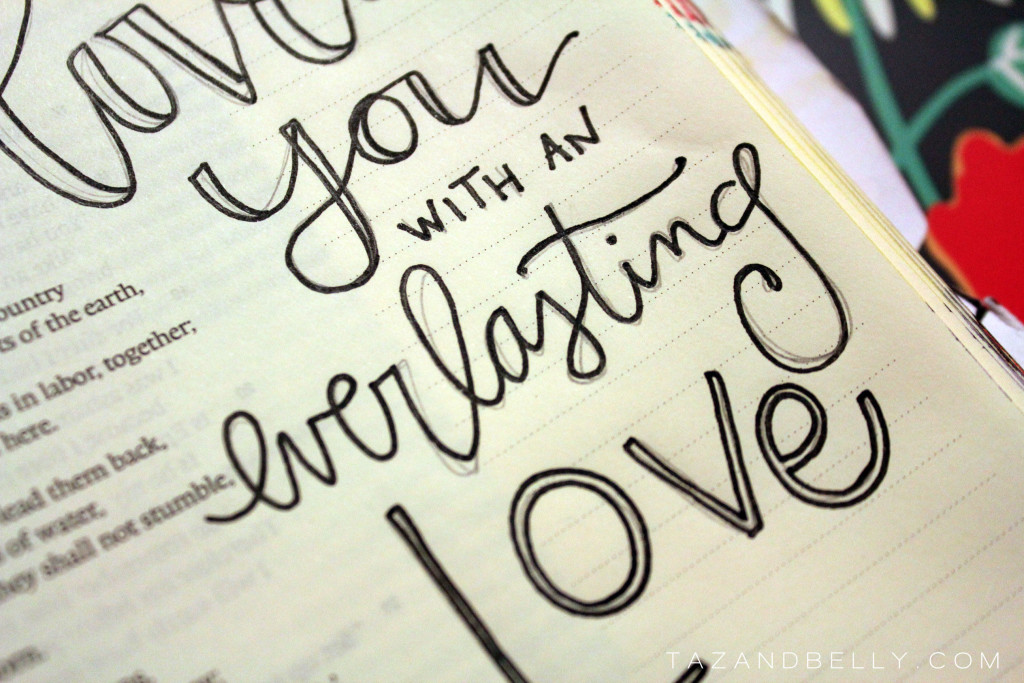 you
WITH AN
everlasting
Love
ts of the earth,
in labor, together;
here.
lead them back,
of water,
they shall not stumble,
TAZANDBELLY.COM